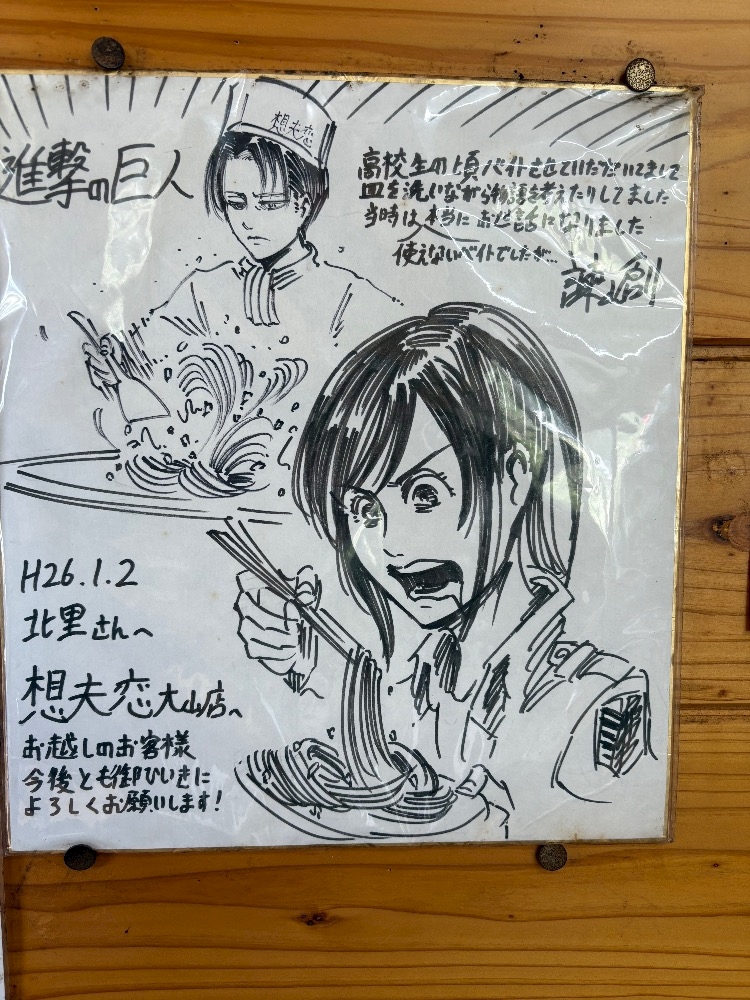 想夫恋
進撃の巨人
高校生の頃バイトさせていただいてまして
皿を洗いながら物語を考えたりしてました
当時は本当にお世話になりました
使えないバイトでしたが…
諫山創
H26.1.2
北里さんへ
想夫恋大山店へ
お越しのお客様
今後とも御ひいきに
よろしくお願いします!